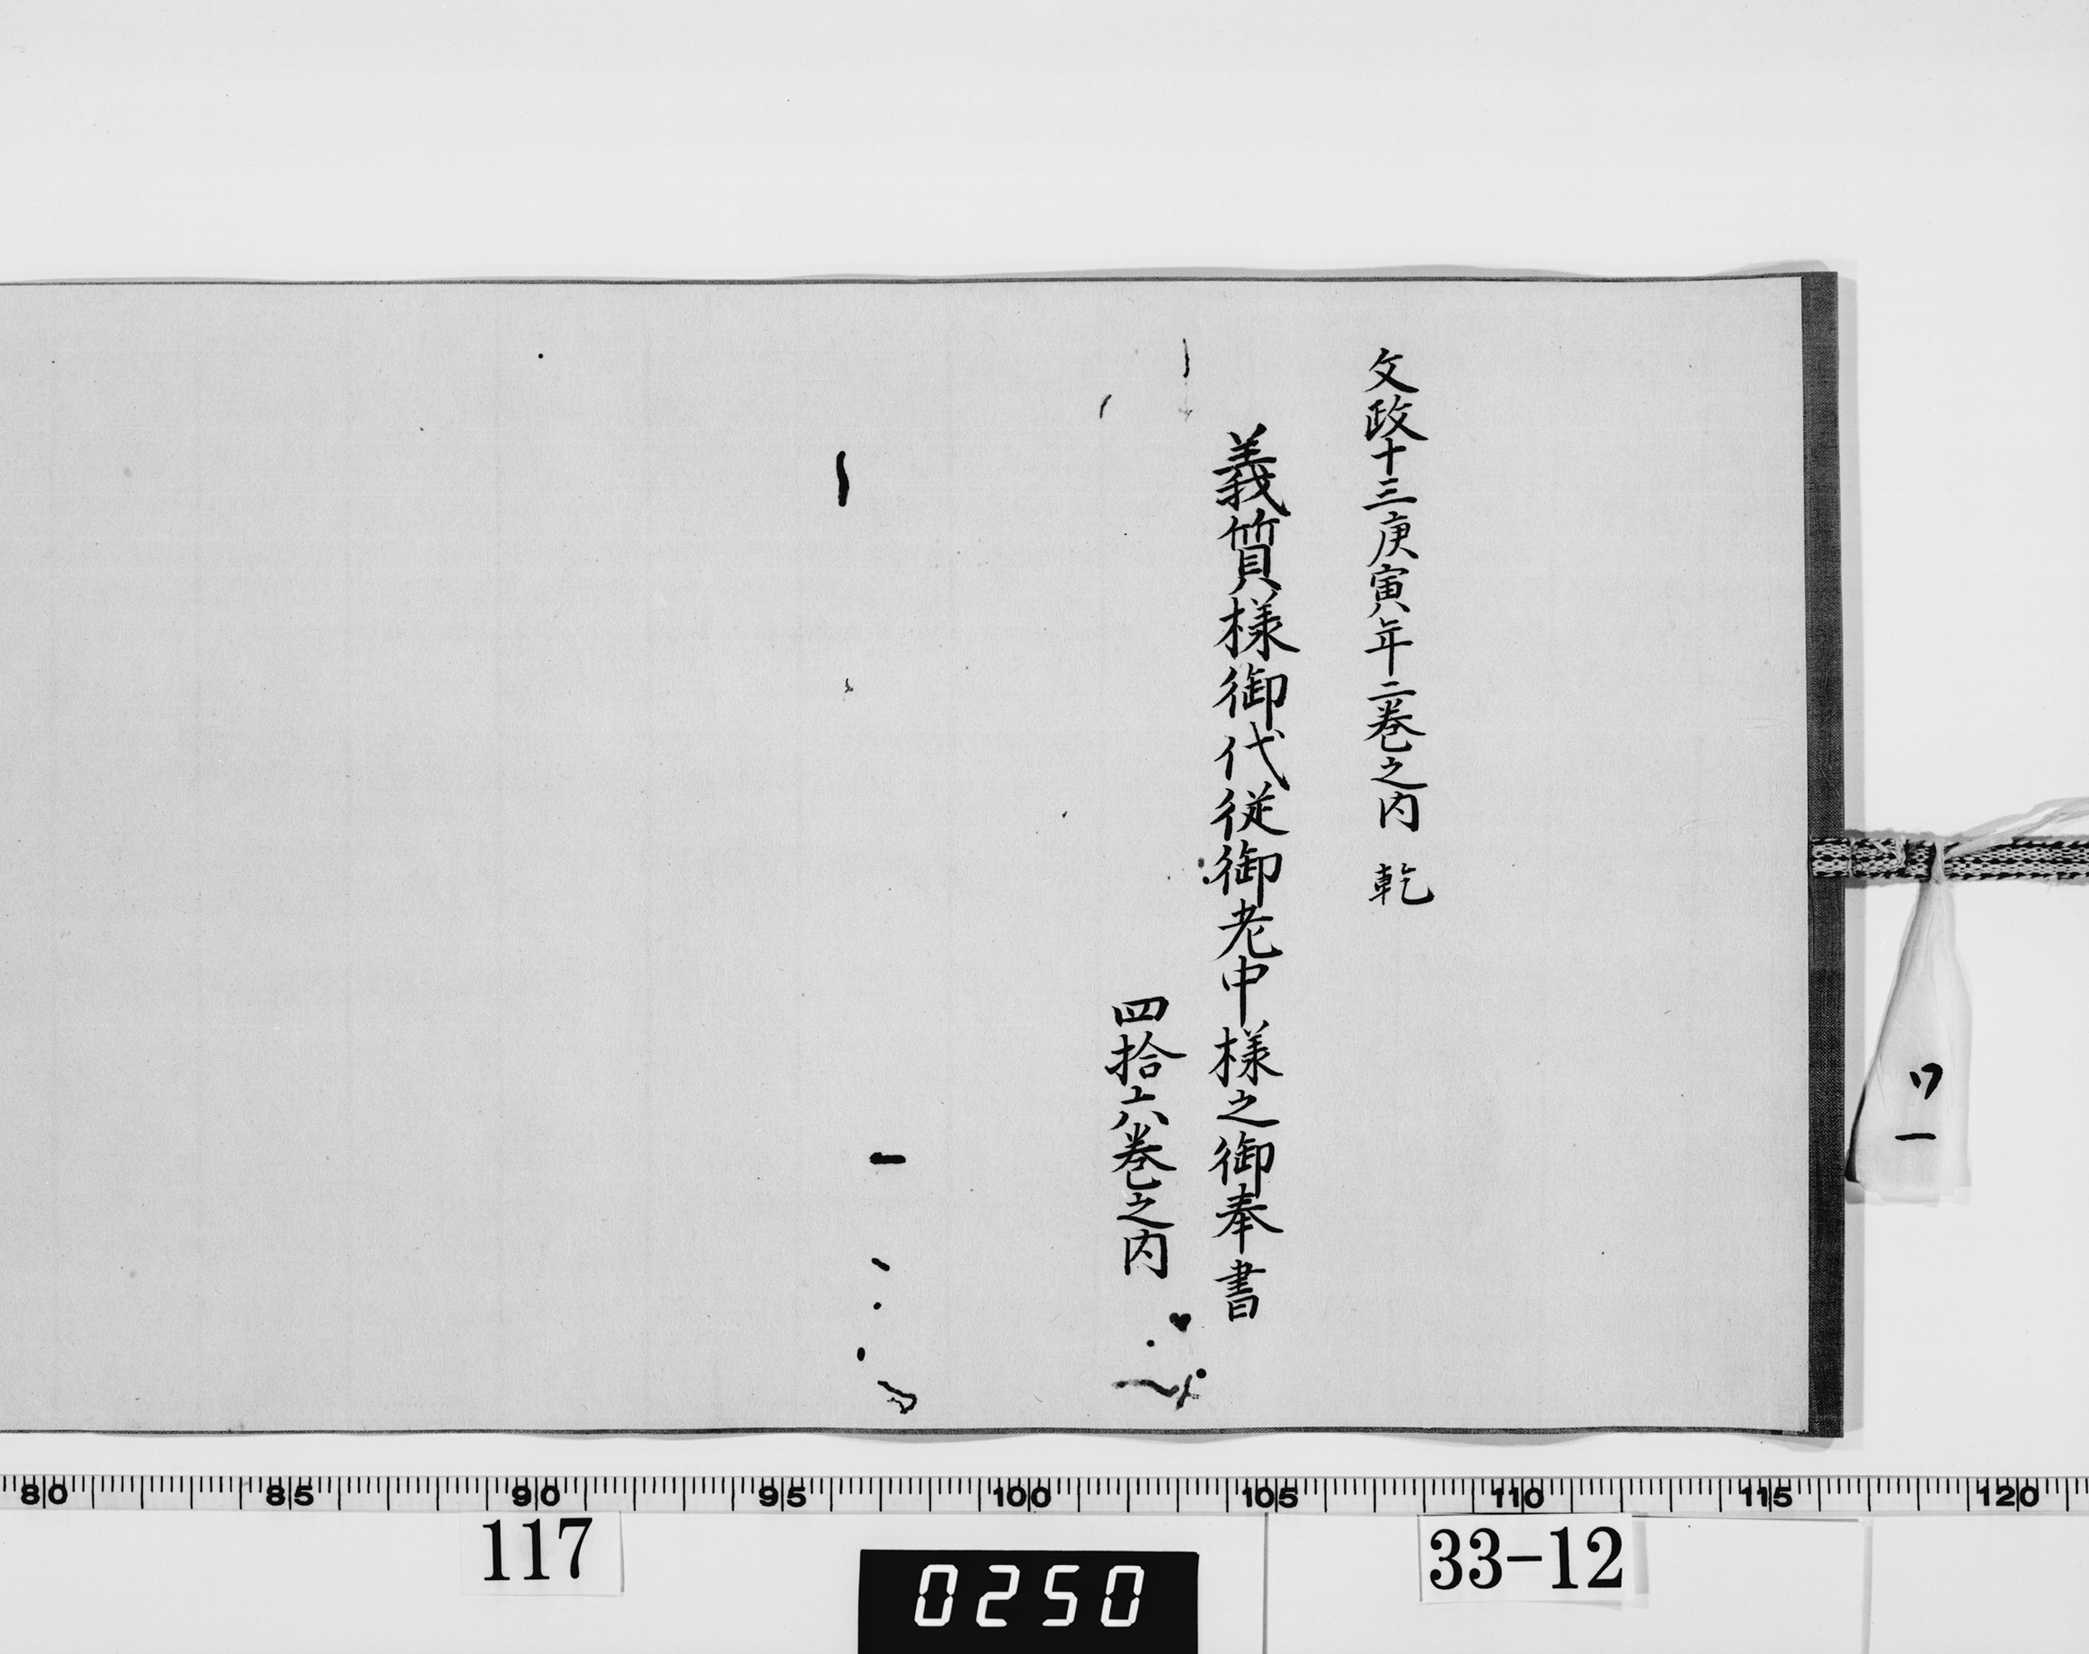 文政十三庚寅年二巻之内 乾
義質様御代従御老中様之御奉書
四拾六巻之内
ワ一
80 85 90 95 100 105 110 115 120
117
0250
33-12